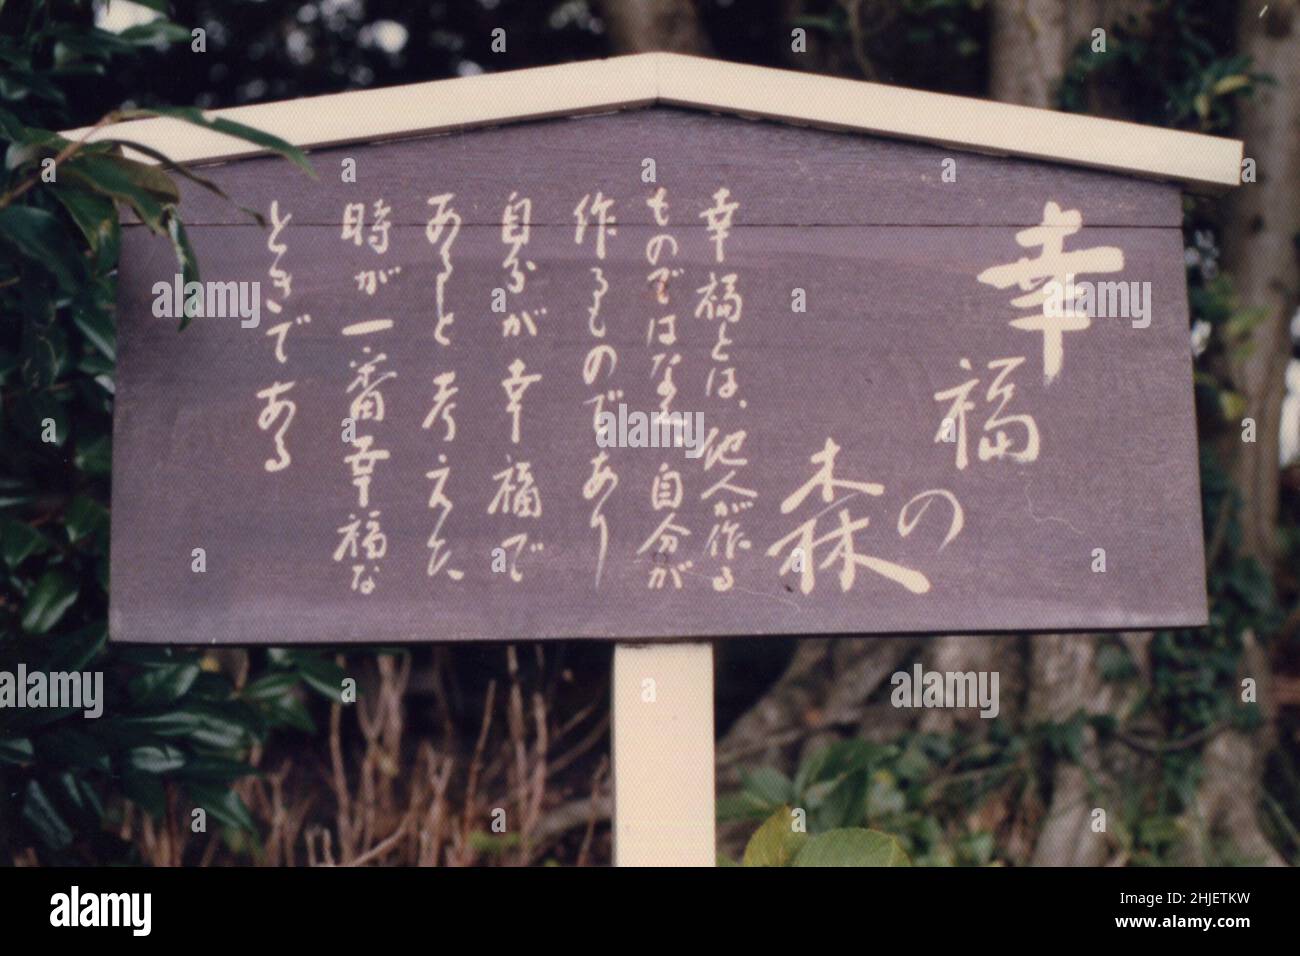 幸福の森
幸福とは、他人が作る
ものではなく、自分が
作るものであり
自分が幸福で
あると考えた
時が一番幸福な
ときである
alamy
Image ID: 2HJETKW
www.alamy.com